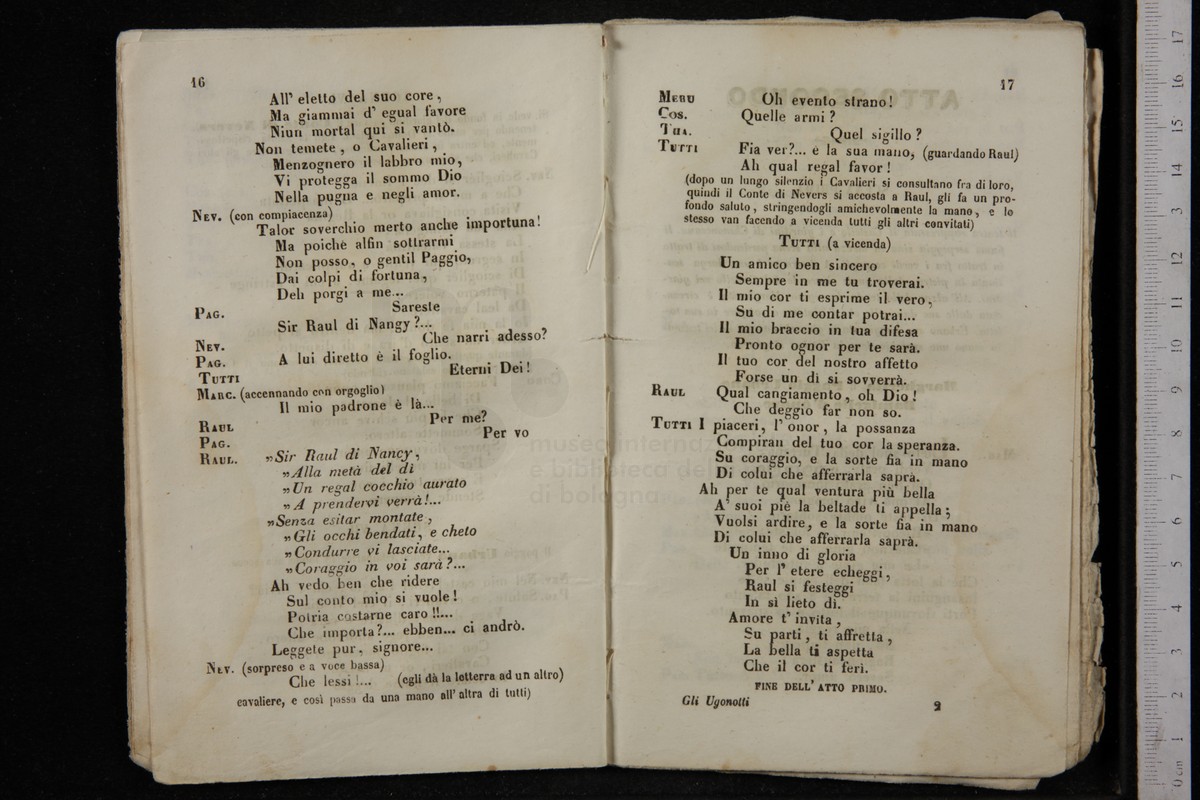 16
All' eletto del suo core,
Ma giammai d' egual favore
Niun mortal qui si vantò.
Non temete, o Cavalieri,
Menzognero il labbro mio,
Vi protegga il sommo Dio
Nella pugna e negli amor.
NEV. (con compiacenza)
Talor soverchio merto anche importuna!
Ma poichè alfin sottrarmi
Non posso, o gentil Paggio,
Dai colpi di fortuna,
Deh porgi a me...
PAG. Sareste
Sir Raul di Nangy?...
NEV. Che narri adesso?
PAG. A lui diretto è il foglio.
TUTTI Eterni Dei!
MARC. (accennando con orgoglio)
Il mio padrone è là...
RAUL Per me?
PAG. Per vo
RAUL. „Sir Raul di Nancy,
„Alla metà del dì
„Un regal cocchio aurato
„A prendervi verrà!...
„Senza esitar montate,
„Gli occhi bendati, e cheto
„Condurre vi lasciate...
„Coraggio in voi sarà?...
Ah vedo ben che ridere
Sul conto mio si vuole!
Potria costarne caro!!...
Che importa?... ebben... ci andrò.
Leggete pur, signore...
NEV. (sorpreso e a voce bassa)
Che lessi!... (egli dà la lotterra ad un altro)
cavaliere, e così passa da una mano all' altra di tutti)
17
MERU Oh evento strano!
COS. Quelle armi?
THA. Quel sigillo?
TUTTI Fia ver?... è la sua mano, (guardando Raul)
Ah qual regal favor!
(dopo un lungo silenzio i Cavalieri si consultano fra di loro,
quindi il Conte di Nevers si accosta a Raul, gli fa un pro-
fondo saluto, stringendogli amichevolmente la mano, e lo
stesso van facendo a vicenda tutti gli altri convitati)
TUTTI (a vicenda)
Un amico ben sincero
Sempre in me tu troverai.
Il mio cor ti esprime il vero,
Su di me contar potrai...
Il mio braccio in tua difesa
Pronto ognor per te sarà.
Il tuo cor del nostro affetto
Forse un dì si sovverrà.
RAUL Qual cangiamento, oh Dio!
Che deggio far non so.
TUTTI I piaceri, l' onor, la possanza
Compiran del tuo cor la speranza.
Su coraggio, e la sorte fia in mano
Di colui che afferrarla saprà.
Ah per te qual ventura più bella
A' suoi piè la beltade ti appella;
Vuolsi ardire, e la sorte fia in mano
Di colui che afferrarla saprà.
Un inno di gloria
Per l' etere echeggi,
Raul si festeggi
In sì lieto dì.
Amore t' invita,
Su parti, ti affretta,
La bella ti aspetta
Che il cor ti ferì.
FINE DELL' ATTO PRIMO.
Gli Ugonotti 2